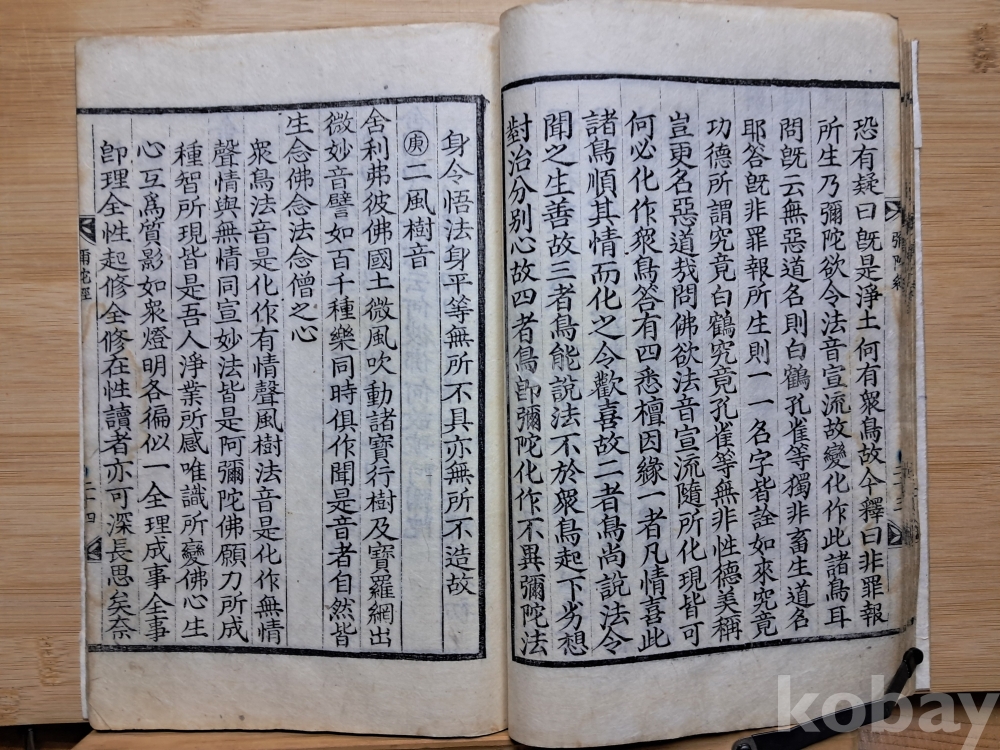 恐有疑曰旣是淨土何有衆鳥故今釋曰非罪報
所生乃彌陀欲令法音宣流故變化作此諸鳥耳
問旣云無惡道名則白鶴孔雀等獨非畜生道名
耶答旣非罪報所生則一一名字皆詮如來究竟
功德所謂究竟白鶴究竟孔雀等無非性德美稱
豈更名惡道哉問佛欲法音宣流隨所化現皆可
何必化作衆鳥答有四悉檀因緣一者凡情喜此
諸鳥順其情而化之令歡喜故二者鳥尚說法令
聞之生善故三者鳥能說法不於衆鳥起下劣想
對治分別心故四者鳥卽彌陀化作不異彌陀法
身令悟法身平等無所不具亦無所不造故
庚二風樹音
舍利弗彼佛國土微風吹動諸寶行樹及寶羅網出
微妙音譬如百千種樂同時俱作聞是音者自然皆
生念佛念法念僧之心
衆鳥法音是化作有情聲風樹法音是化作無情
聲情與無情同宣妙法皆是阿彌陀佛願力所成
種智所現皆是吾人淨業所感唯識所變佛心生
心互爲質影如衆燈明各徧似一全理成事全事
卽理全性起修全修在性讀者亦可深長思矣奈
彌陀經
二十三
彌陀經
二十四
kobay